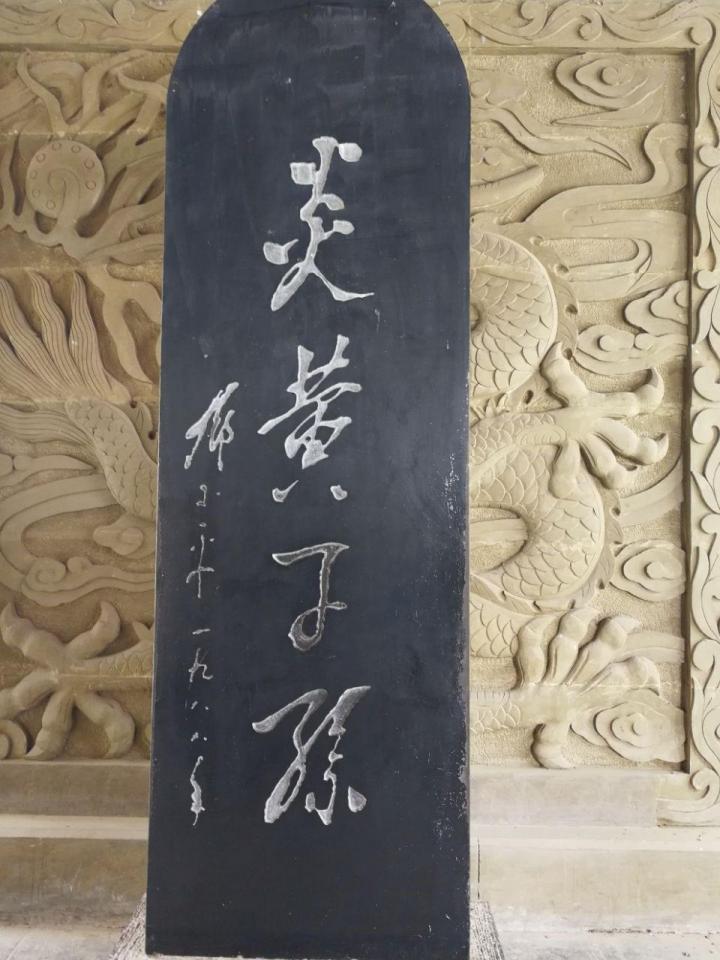 炎黄子孙
邓小平 一九八八年